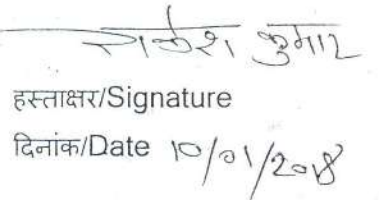 राकेश कुमार
हस्ताक्षर/Signature
दिनांक/Date 10/01/2018